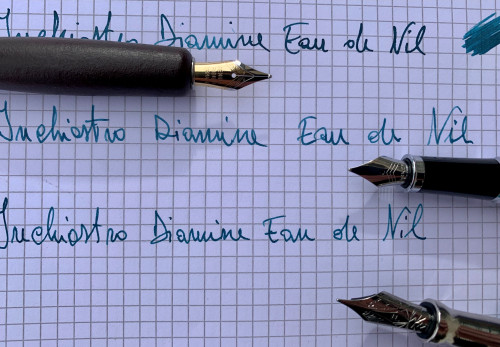 Inchiostro Diamine Eau de Nil
Inchiostro Diamine Eau de Nil
Inchiostro Diamine Eau de Nil